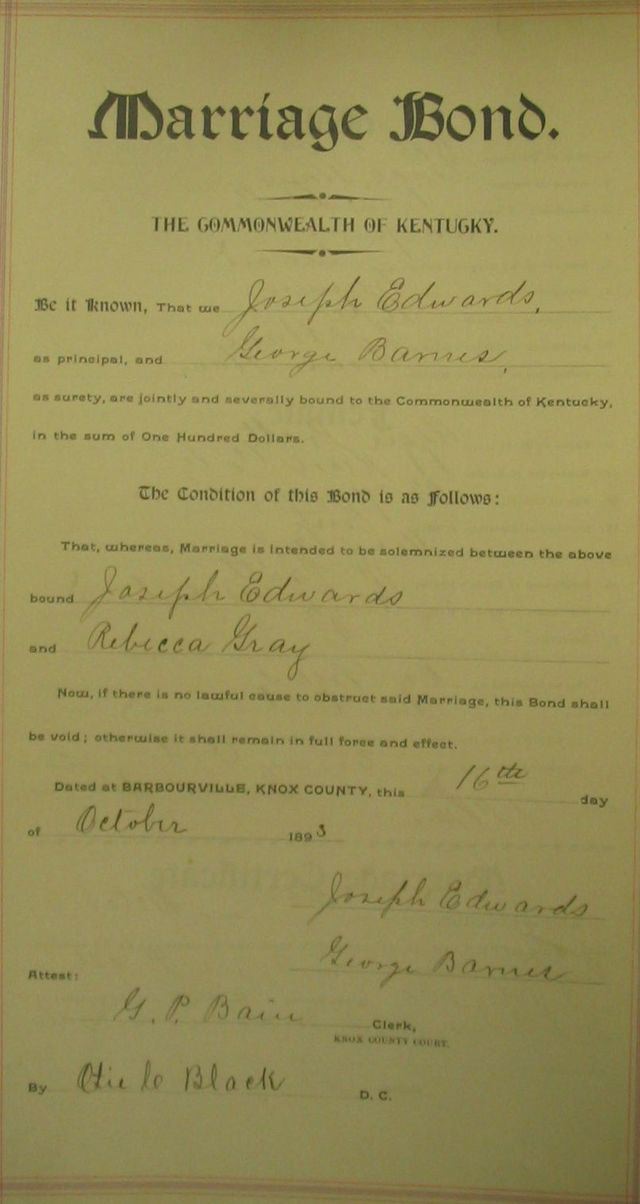 Marriage Bond.
THE COMMONWEALTH OF KENTUCKY.
Be it Known, That we Joseph Edwards,
as principal, and George Barnes,
as surety, are jointly and severally bound to the Commonwealth of Kentucky,
in the sum of One Hundred Dollars.
The Condition of this Bond is as Follows:
That, whereas, Marriage is intended to be solemnized between the above
bound Joseph Edwards
and Rebecca Gray
Now, if there is no lawful cause to obstruct said Marriage, this Bond shall
be void; otherwise it shall remain in full force and effect.
Dated at BARBOURVILLE, KNOX COUNTY, this 16th day
of October 1893
Joseph Edwards
George Barnes
Attest:
G. P. Bain Clerk,
KNOX COUNTY COURT.
By Black D. C.